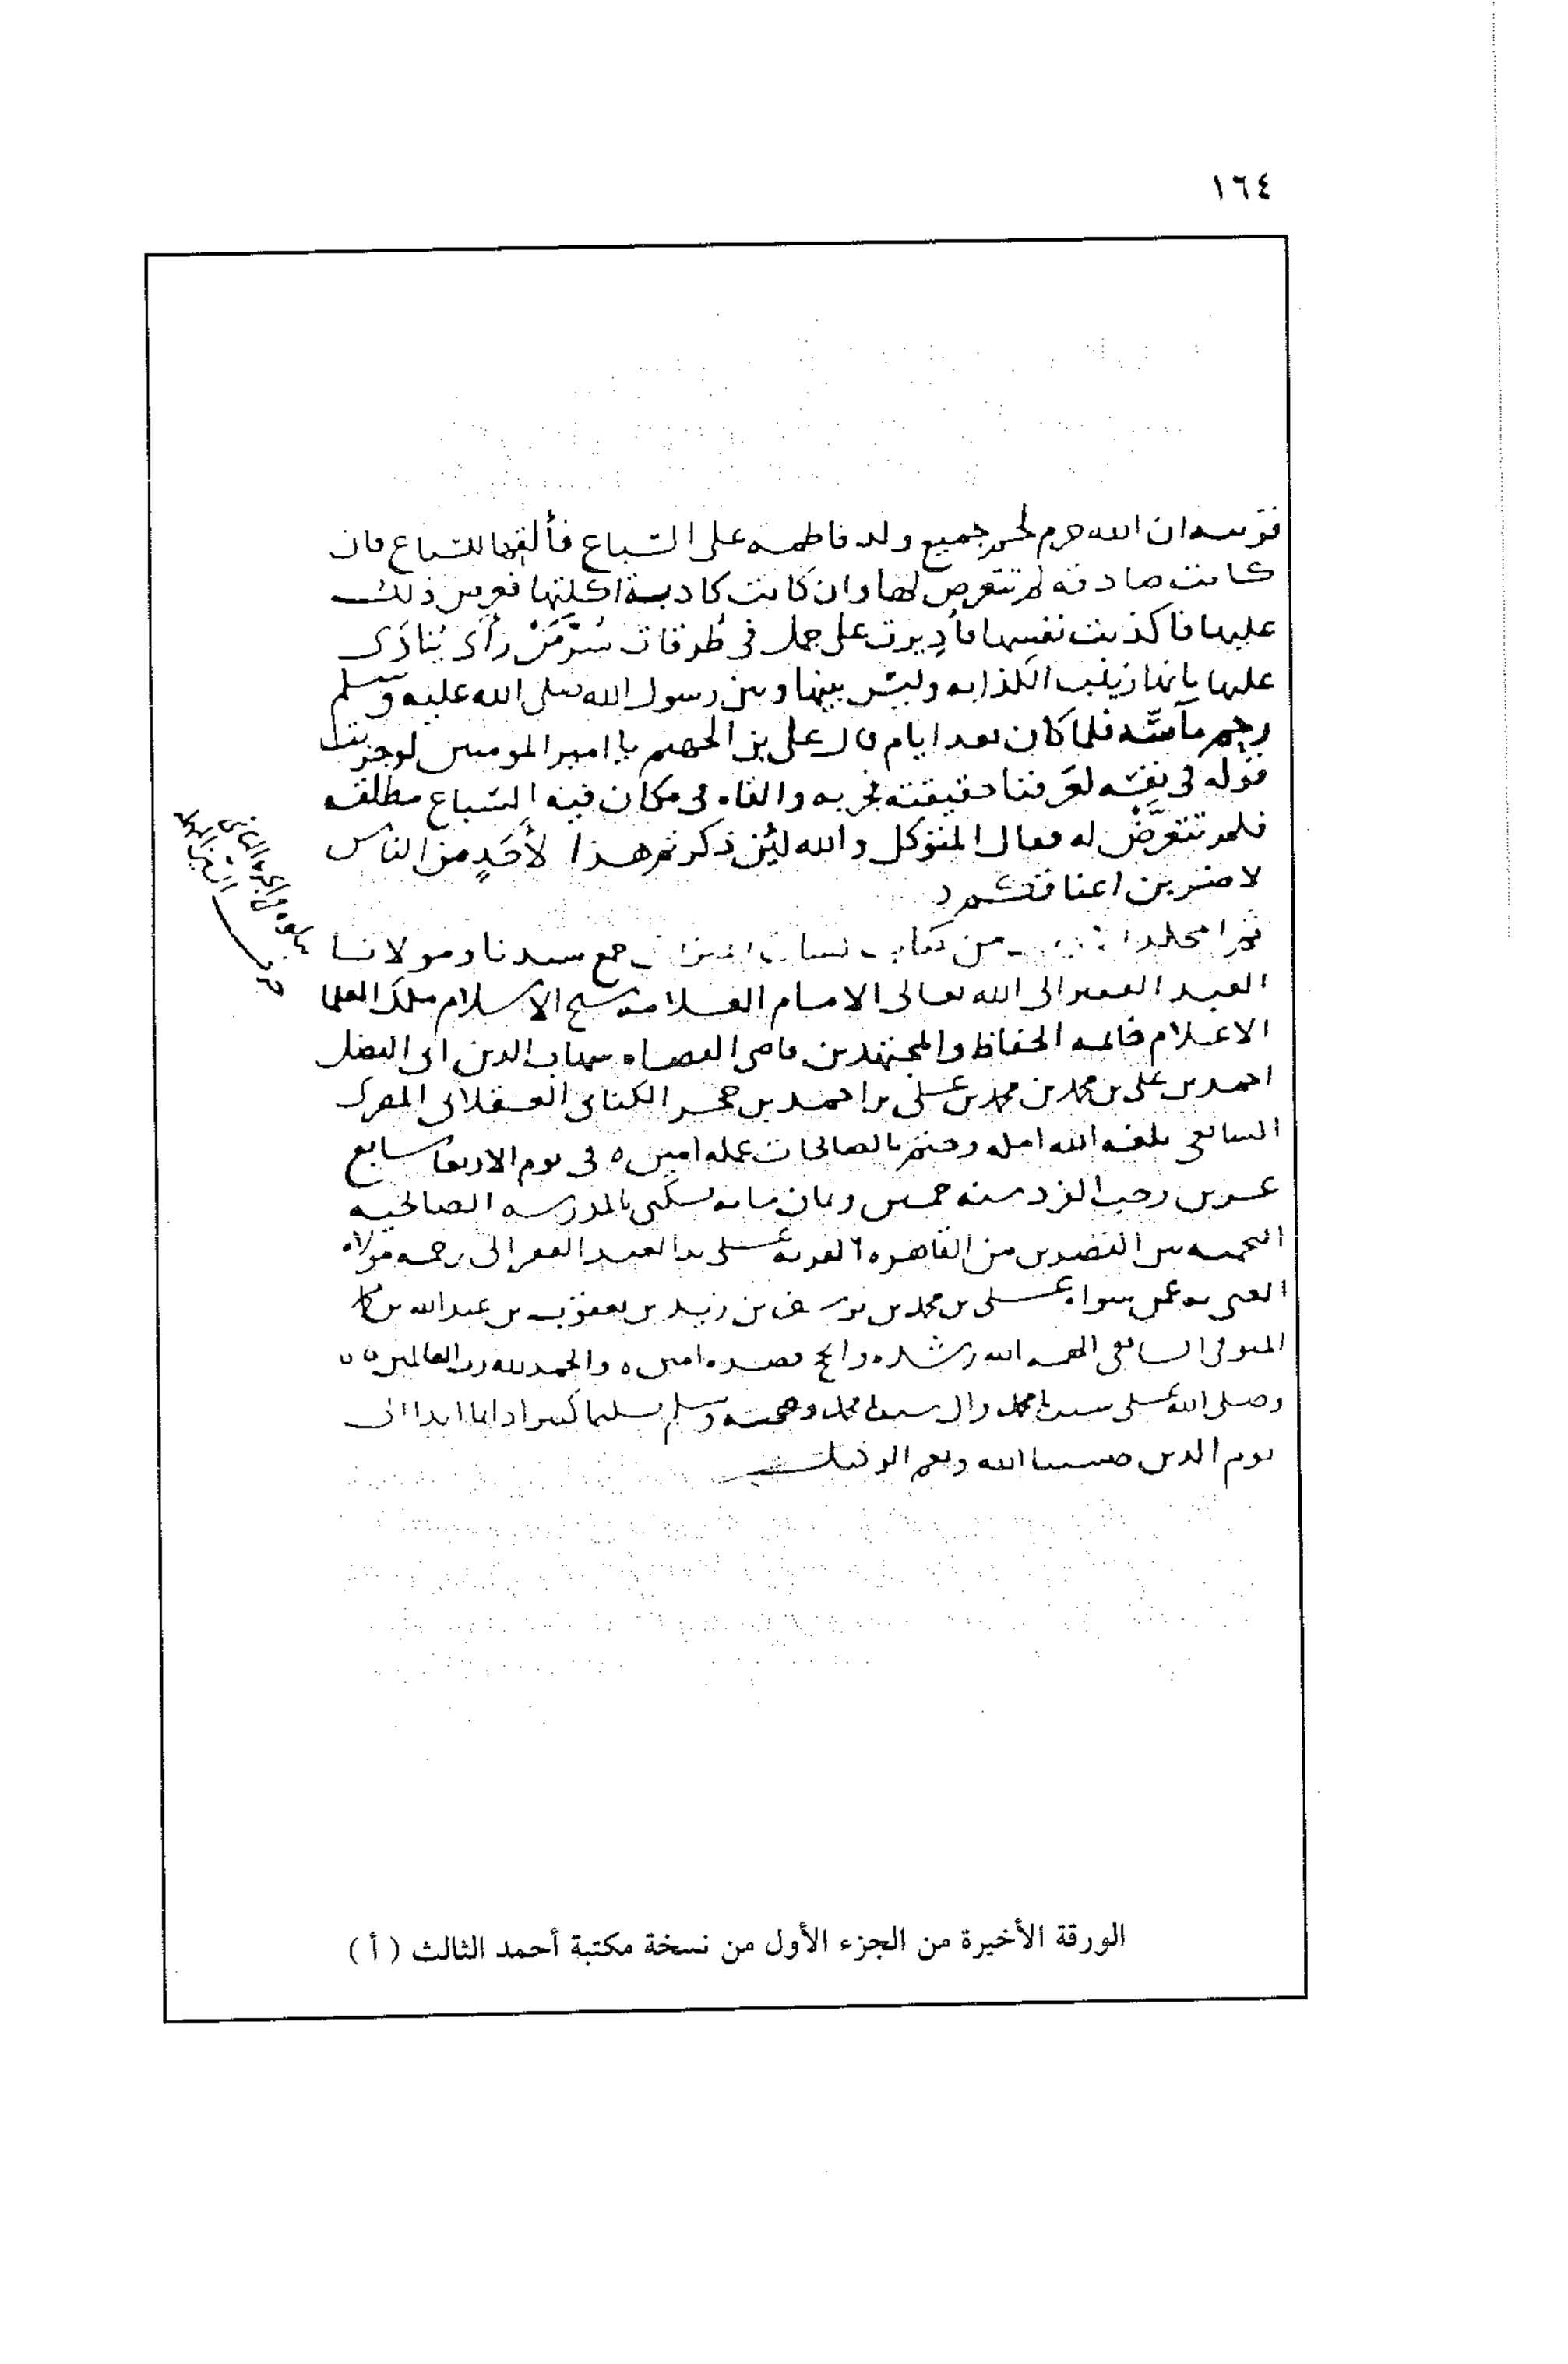 ١٦٤
ان الله حرم لحم جميع ولد فاطمه على السباع فألقها للسباع فان
كانت صادقه لم تتعرض لها وان كانت كاذبة اكلتها فعرض ذلك
عليها فاكذبت نفسها فأديرت على جمل في طرقات سُرَّ مَنْ رأى يُنادَى
عليها بانها زينب الكذابه وليس بينها وبين رسول الله صلى الله عليه وسلم
رحم ماسّه فلما كان بعد ايام قال على بن الجهم يا امير المومنين لو جربت
قوله في نفسه لعرفنا حقيقته فجربه والقاه في مكان فيه السباع مطلقه
فلم تتعرَّض له فقال المتوكل والله لئن ذكرتم هذا لأحَدٍ من الناس
لاضربن اعناقكم
من كتاب لسان الميزان جمع سيدنا ومولانا
العبد الفقير الى الله تعالى الامام العلامه شيخ الاسلام ملك العلما
الاعلام خاتمه الحفاظ والمجتهدين قاضي القضاه شهاب الدين ابى الفضل
احمد بن على بن محمد بن محمد بن على بن احمد بن حجر الكنانى العسقلانى
الشافعى بلغه الله امله وختم بالصالحات عمله امين ه فى يوم الاربعا سابع
عشرين رجب الفرد سنه خمس وثمان مايه بسكنى بالمدرسه الصالحيه
النجميه بين القصرين من القاهره المعزيه على يد العبد الفقير الى رحمه مولاه
الغنى به عمن سواه على بن محمد بن يوسف بن يعقوب بن عبد الله
الشافعى الهمه الله رشده وانجح قصده امين ه والحمد لله رب العالمين
وصلى الله على سيدنا محمد وال سيدنا محمد وصحبه وسلم تسليما كثيرا دايما ابدا الى
يوم الدين حسبنا الله ونعم الوكيل
الورقة الأخيرة من الجزء الأول من نسخة مكتبة أحمد الثالث ( أ )